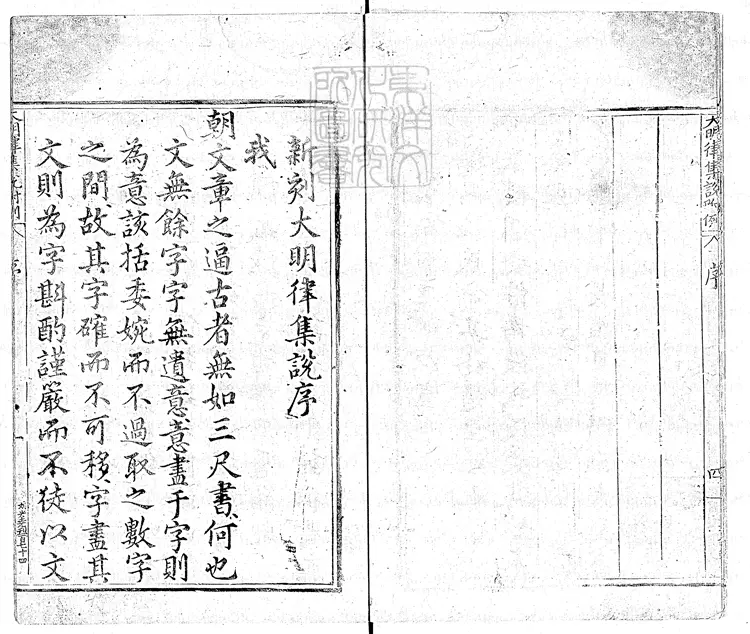 大明律集說附例 序 四
東洋文
化研究
所圖書
新刻大明律集說序
我
朝文章之逼古者無如三尺書何也
文無餘字字無遺意意盡于字則
為意該括委婉而不過取之數字
之間故其字確而不可移字盡其
文則為字斟酌謹嚴而不徒以文
大明律集說附例 序 一